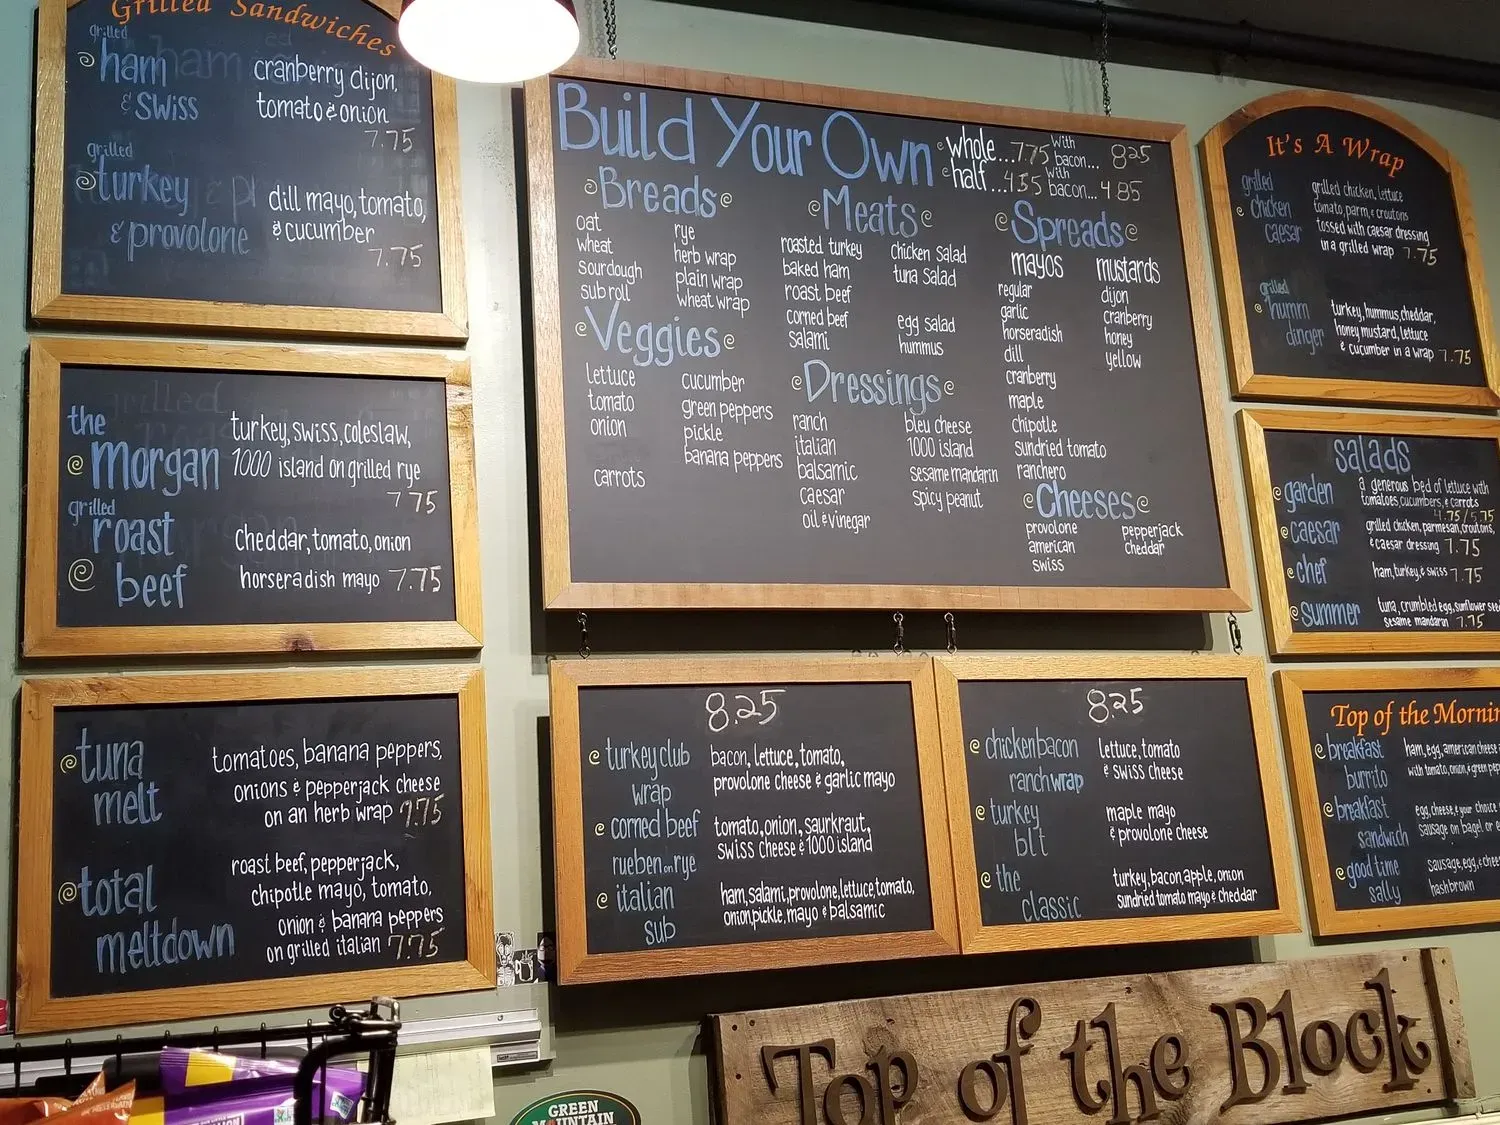 Grilled Sandwiches
grilled
ham cranberry dijon,
& swiss tomato & onion
7.75
grilled
turkey dill mayo, tomato,
& provolone & cucumber
7.75
the turkey, swiss, coleslaw,
morgan 1000 island on grilled rye
7.75
grilled
roast cheddar, tomato, onion
beef horseradish mayo 7.75
tuna tomatoes, banana peppers,
melt onions & pepperjack cheese
on an herb wrap 7.75
total roast beef, pepperjack,
meltdown chipotle mayo, tomato,
onion & banana peppers
on grilled italian 7.75
Build Your Own
whole...7.75 with bacon... 8.25
half...4.35 with bacon... 4.85
Breads
oat rye
wheat herb wrap
sourdough plain wrap
sub roll wheat wrap
Veggies
lettuce cucumber
tomato green peppers
onion pickle
banana peppers
carrots
Meats
roasted turkey chicken salad
baked ham tuna salad
roast beef
corned beef egg salad
salami hummus
Dressings
ranch bleu cheese
italian 1000 island
balsamic sesame mandarin
caesar spicy peanut
oil & vinegar
Spreads
mayos mustards
regular dijon
garlic cranberry
horseradish honey
dill yellow
cranberry
maple
chipotle
sundried tomato
ranchero
Cheeses
provolone pepperjack
american cheddar
swiss
8.25
turkey club bacon, lettuce, tomato,
wrap provolone cheese & garlic mayo
corned beef tomato, onion, saurkraut,
rueben on rye swiss cheese & 1000 island
italian ham, salami, provolone, lettuce, tomato,
sub onion, pickle, mayo & balsamic
8.25
chicken bacon lettuce, tomato
ranch wrap & swiss cheese
turkey maple mayo
blt & provolone cheese
the turkey, bacon, apple, onion
classic sundried tomato mayo & cheddar
It's A Wrap
grilled grilled chicken, lettuce
chicken tomato, parm, & croutons
caesar tossed with caesar dressing
in a grilled wrap 7.75
grilled
humm turkey, hummus, cheddar,
dinger honey mustard, lettuce
& cucumber in a wrap 7.75
salads
garden a generous bed of lettuce with
tomatoes, cucumbers, & carrots
4.75/5.75
caesar grilled chicken, parmesan, croutons,
& caesar dressing 7.75
chef ham, turkey, & swiss 7.75
summer tuna, crumbled egg, sunflower see
sesame mandarin 7.75
Top of the Mornin
breakfast ham, egg, american cheese
burrito with tomato, onion, & green pep
breakfast egg, cheese, & your choice
sandwich sausage on bagel or
good time sausage, egg, & chee
sally hashbrown
Top of the Block
GREEN
MOUNTAIN